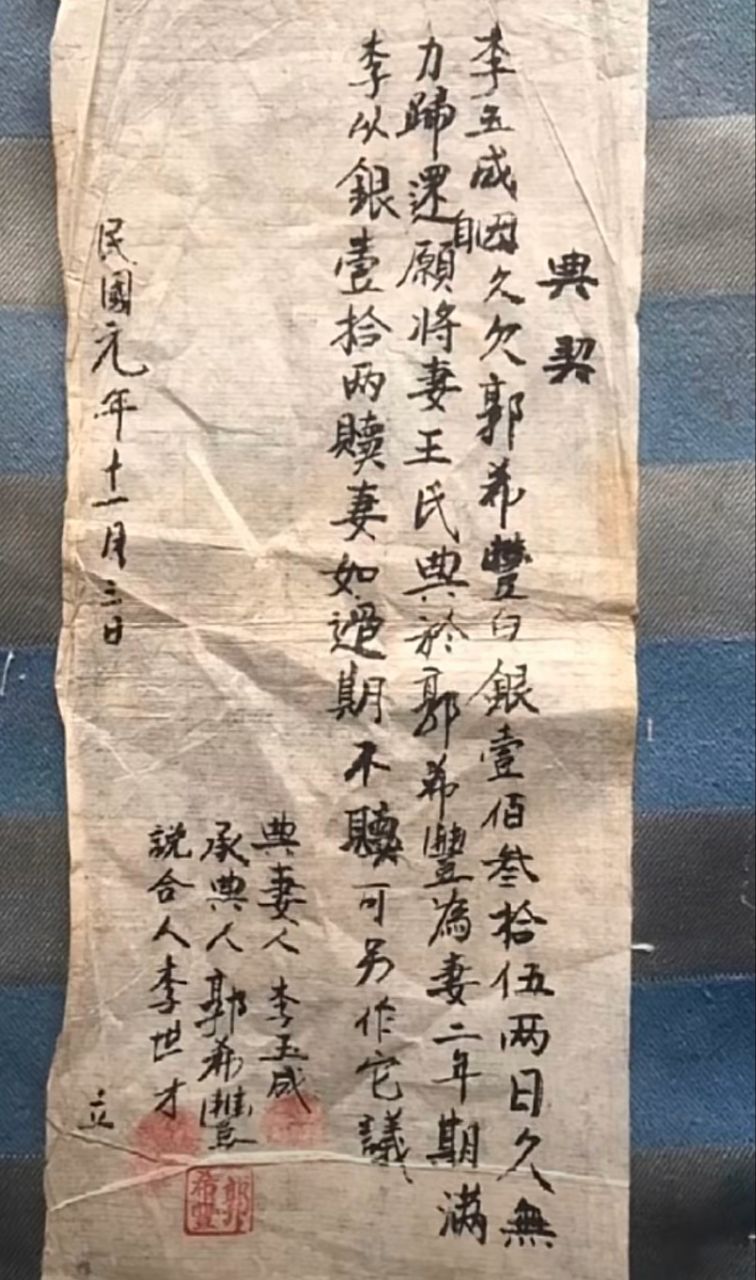 典契
李玉成因久欠郭希豐白銀壹佰叁拾伍兩日久無
力歸還自願將妻王氏典於郭希豐為妻二年期滿
李以銀壹拾兩贖妻如過期不贖可另作它議
典妻人 李玉成
承典人 郭希豐
説合人 李世才
民國元年十一月三日 立
郭希豐